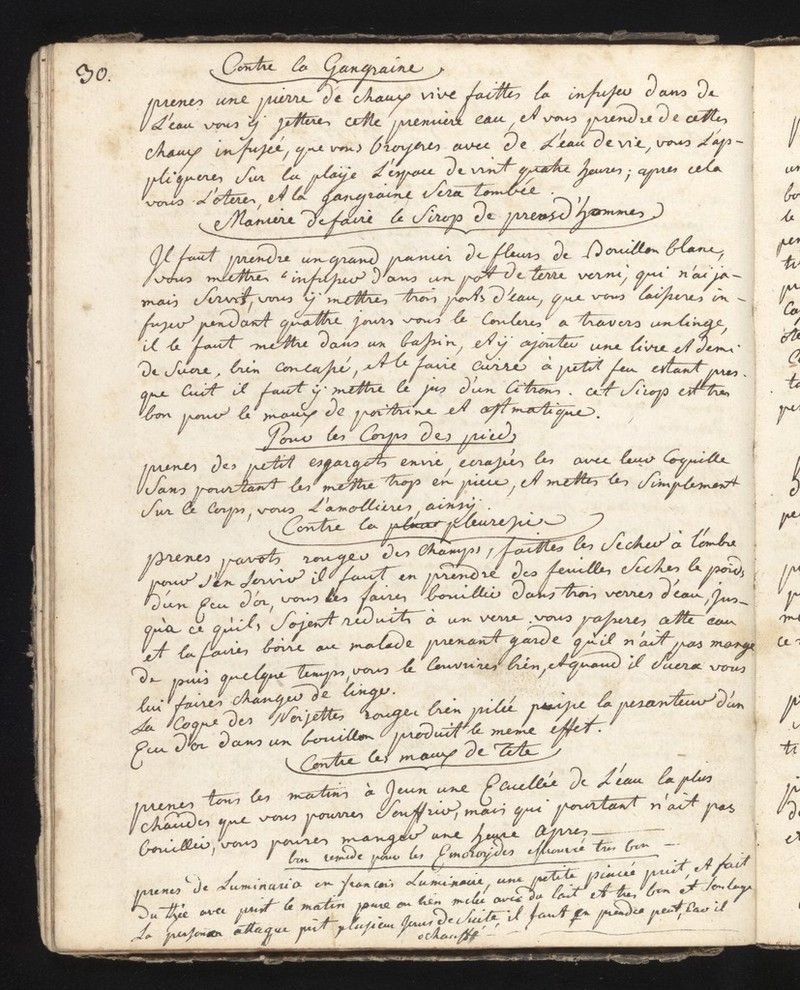 30.
Contre la Gangraine
prenes une pierre de chaux vive faittes la infuser dans de
L'eau vous ÿ jetteres cette premiere eau, et vous prendre de cettes
chaux infusée, que vous broyeres avec de L'eau de vie, vous L'ap-
pliqueres sur la plaije L'espace de vint quatre heures; apres cela
vous L'oteres, et la gangraine sera tombée.
Maniere de faire le Sirop de
Il faut prendre un grand panier de fleurs de Bouillon blanc,
vous mettres infuser dans un pot de terre verni, qui n'ai ja-
mais servit, vous ÿ mettres trois pots d'eau, que vous laisseres in-
fuser pendant quattre jours vous le couleres a travers un linge,
il le faut mettre dans un bassin, et ÿ ajouter une livre et demi
de sucre, bien concassé, et le faire cuirre à petit feu estant pres-
que cuit il faut ÿ mettre le jus d'un Citrons. cet Sirop est tres
bon pour le maux de poitrine et astmatique.
Pour les Corps des pieds
prenes des petit esgargots envie, ecrasées les avec leur Coquille
Sans pourtant les mettre trop en piece, et mettes les simplement
sur le Corps, vous L'amollieres, ainsÿ.
Contre la pleuresie
prenes pavots rouger des champs, faittes les secher à l'ombre
pour s'en servir il faut en prendre des feuilles seches le poids
d'un Ecu d'or, vous les faires bouillir dans trois verres d'eau, jus-
qu'a ce qu'ils soient reduits à un verre. vous passeres cette eau
et la faires boire au malade prenant garde qu'il n'ait pas mangé
de puis quelque temps, vous le couvrires bien, et quand il suera vous
lui faires changer de linge.
La Coque des Noisettes rouger bien pilée la pesanteur d'un
Ecu d'or dans un bouillon produit le meme effet.
Contre les maux de Tete
prenes tous les matins à Jeun une Ecuellée de L'eau la plus
chaudes que vous pourres souffrir, mais qui pourtant n'ait pas
bouillir, vous poures manger une heure apres
bon remede pour les Emoroÿdes eprouvé tres bon
prenes de Luminaria en francois Luminaire, une petite pincée prit, et fait
du thée avec prist le matin pure ou bien mele avec du lait et tres bon et soulage
La personne attaque prit plusieur Jours de suite, il faut en prendre peut, Car il
echauffe